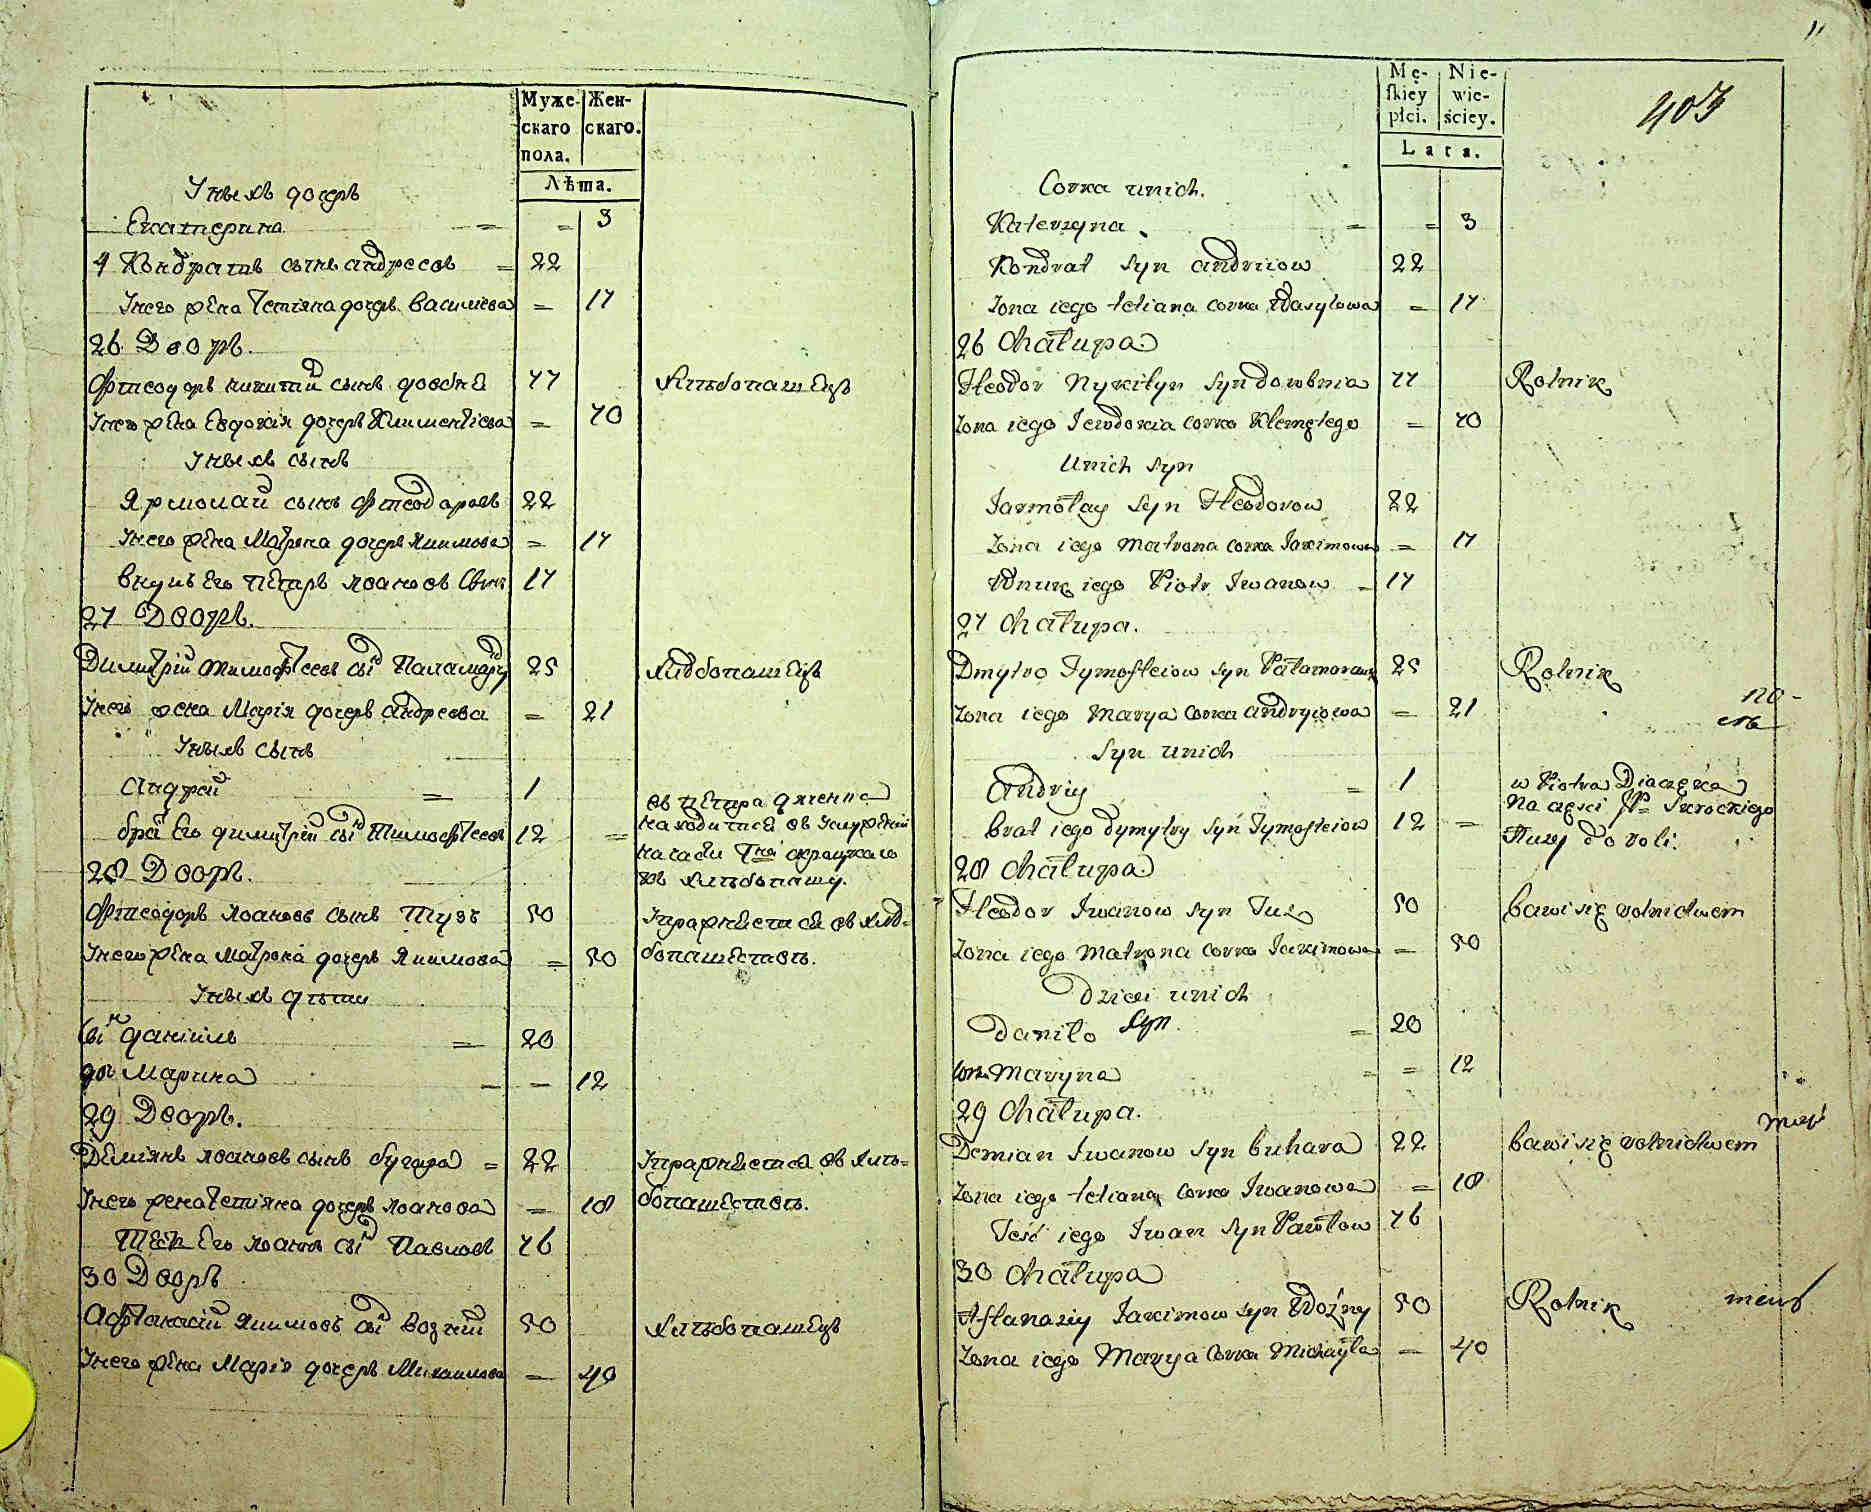 Муже-
скаго
пола.
Жен-
скаго.
Лѣта.
У ныхъ дочерь
Екатерина = = 3
4 Кондратъ сынъ андреевъ = 22
У него жена Тетіяна дочерь василіева = 17
26 Дворъ.
Фтеодоръ никитий сынъ довбня 77 хлѣбопашецъ
У него жена Евдокія дочерь Климентіева = 70
У ныхъ сынъ
Ярмолай сынъ Фтеодоровъ 22
У него жена Матрона дочерь Якимова = 17
внукъ Его Петръ Іоановъ Сынъ 17
27 Дворъ.
Димитрій Тимофтеевъ сынъ Паламарчу 25 хлѣбопашецъ
У него жена Марія дочерь андреева = 21
У ныхъ сынъ
Андрей = 1
братъ Его димитрій сынъ Тимофтеевъ 12 =
въ петра дяченка
находится въ
на части Пна скроцкаго
хлѣбопашу.
28 Дворъ.
Фтеодоръ Іоановъ сынъ Тузъ 50 упражняется въ хлѣ-
У него жена Матрона дочерь Якимова = 50 бопашествѣ.
У ныхъ дѣти
сынъ даніилъ = 20
дочь Марина = = 12
29 Дворъ.
Деміянъ Іоановъ сынъ бугара = 22 упражняется въ хлѣ-
У него жена Тетіяна дочерь Іоанова = 18 бопашествѣ.
Тесть Его Іоанъ сынъ Павловъ 76
30 Дворъ
Афтанасій Якимовъ сынъ возній 50 хлѣбопашецъ
У него жена Марія дочерь Михаилова = 40
11
403
Mę-
ſkiey
płci.
Nie-
wie-
ściey.
Lata.
Corka unich.
Katerzyna = = 3
Kondrat Syn andriiow 22
Zona iego tetiana corka Wasylowa = 17
26 Chałupa
Fteodor Nykityn Syn dowbnia 77 Rolnik
Zona iego Jewdokia corka Klemętego = 70
Unich Syn
Jarmołay Syn Fteodorow 22
Zona iego Matrona corka Jakimowa = 17
Wnuk iego Piotr Iwanow = 17
27 Chałupa.
Dmytro Tymofteiow Syn Pałamarczuk 25 Rolnik
Zona iego Marya Corka andryiowa = 21
Syn unich
Andriy = 1 w Piotra Diaczęka
na częsci JP Skrockiego
brat iego dymytry Syn Tymofteiow 12 = Służy do roli.
28 Chałupa
Fteodor Iwanow Syn Tuz 50 bawi się rolnictwem
Zona iego Matrona corka Jakimowa = 50
Dzieci unich
Daniło Syn. = 20
Corka Maryna = = 12
29 Chałupa.
Demian Iwanow Syn buhara 22 bawi się rolnictwem
Zona iego tetiana Corka Iwanowa = 18
Teść iego Iwan Syn Pawłow 76
30 Chałupa
Aftanaziy Jakimow syn Woźny 50 Rolnik
Zona iego Marya Corka Michayła = 40